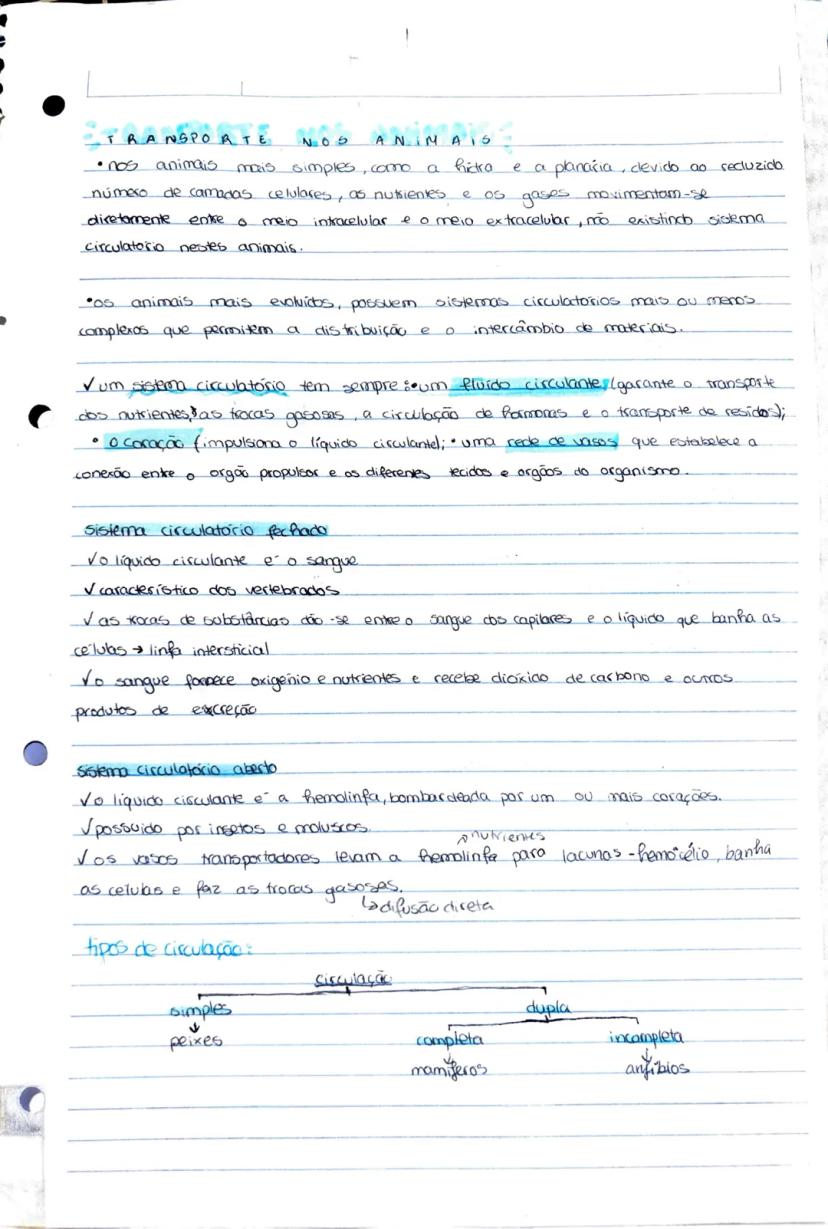 TRANSPORTE NOS ANIMAIS
•nos animais mais simples, como a hidra e a planária, devido ao reduzido
número de camadas celulares, os nutrientes e os gases movimentam-se
diretamente entre o meio intracelular e o meio extracelular, não existindo sistema
circulatório nestes animais.
•os animais mais evoluídos, possuem sistemas circulatórios mais ou menos
complexos que permitem a distribuição e o intercâmbio de materiais.
√ um sistema circulatório tem sempre: •um fluído circulante (garante o transporte
dos nutrientes, as trocas gasosas, a circulação de hormonas e o transporte de resídos);
• o coração (impulsiona o líquido circulante); • uma rede de vasos que estabelece a
conexão entre o orgão propulsor e os diferentes tecidos e orgãos do organismo.
sistema circulatório fechado
√o líquido circulante é o sangue
√ característico dos vertebrados
√ as trocas de substâncias dão-se entre o sangue dos capilares e o líquido que banha as
células → linfa intersticial
√o sangue fornece oxigénio e nutrientes e recebe dioxido de carbono e outros
produtos de excreção
sistema circulatório aberto
√o líquido circulante é a hemolinfa, bombardeada por um ou mais corações.
√possuido por insetos e moluscos.
nutrientes
√ os vasos transportadores levam a hemolinfa para lacunas - hemocélio, banha
as celulas e faz as trocas gasosas.
↳difusão direta
tipos de circulação:
circulação
simples dupla
↓
peixes completa incompleta
↓ ↓
mamíferos anfíbios